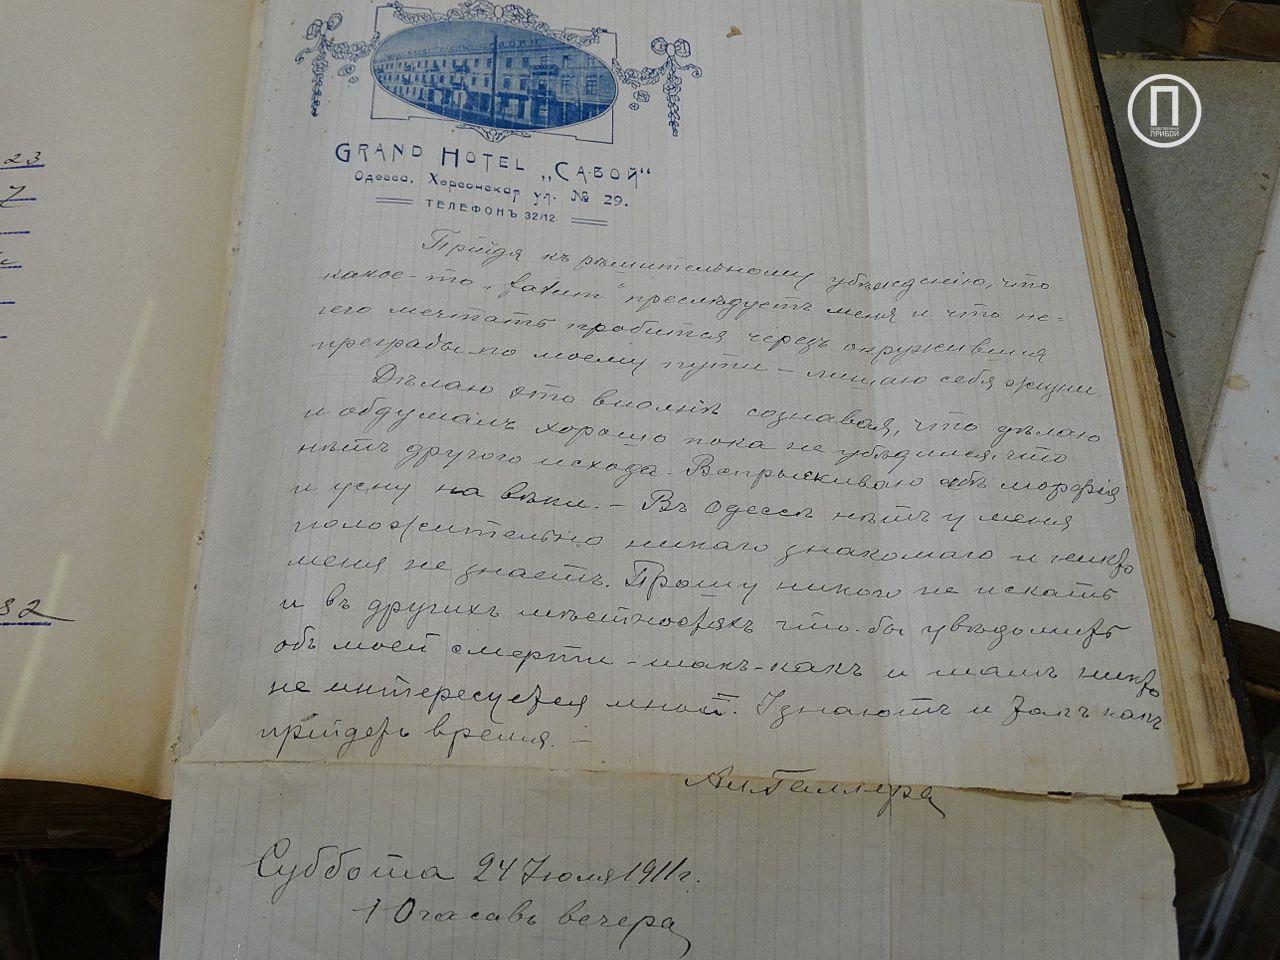 GRAND HOTEL „САВОЙ"
Одесса, Херсонская ул. № 29.
ТЕЛЕФОНЪ 32/12.
Прійдя къ рѣшительному убѣжденію, что
какое-то „fatum" преслѣдуетъ меня и что не-
чего мечтать пробится черезъ окружившія
преграды по моему пути – лишаю себя жизни.
Дѣлаю это вполнѣ сознавая, что дѣлаю
и обдумалъ хорошо пока не убѣдился, что
нѣтъ другого исхода. Вспрыскиваю морфія
и усну на вѣки. – Въ Одессѣ нѣтъ у меня
положительно никаго знакомаго и никто
меня не знаетъ. Прошу никого не искать
и въ другихъ мѣстностяхъ что-бы увѣдомить
объ моей смерти – такъ-какъ и тамъ никто
не интересуется мной. Узнаютъ и такъ какъ
прійдетъ время. –
Суббота 24 Іюля 1911 г.
10 часовъ вечера
23
7
82
П
ОБЩЕСТВЕННЫЙ
ПРИБОЙ